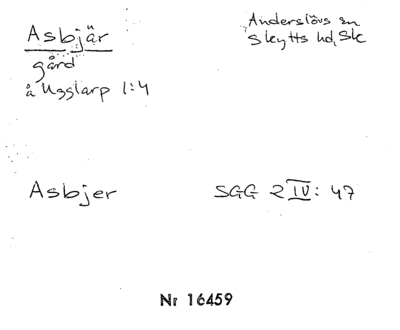 Asbjär
Anderslövs sn
Skytts hd, Sk
gård
å Ugglarp 1:4
Asbjer
SGG 2 IV: 47
Nr 16459